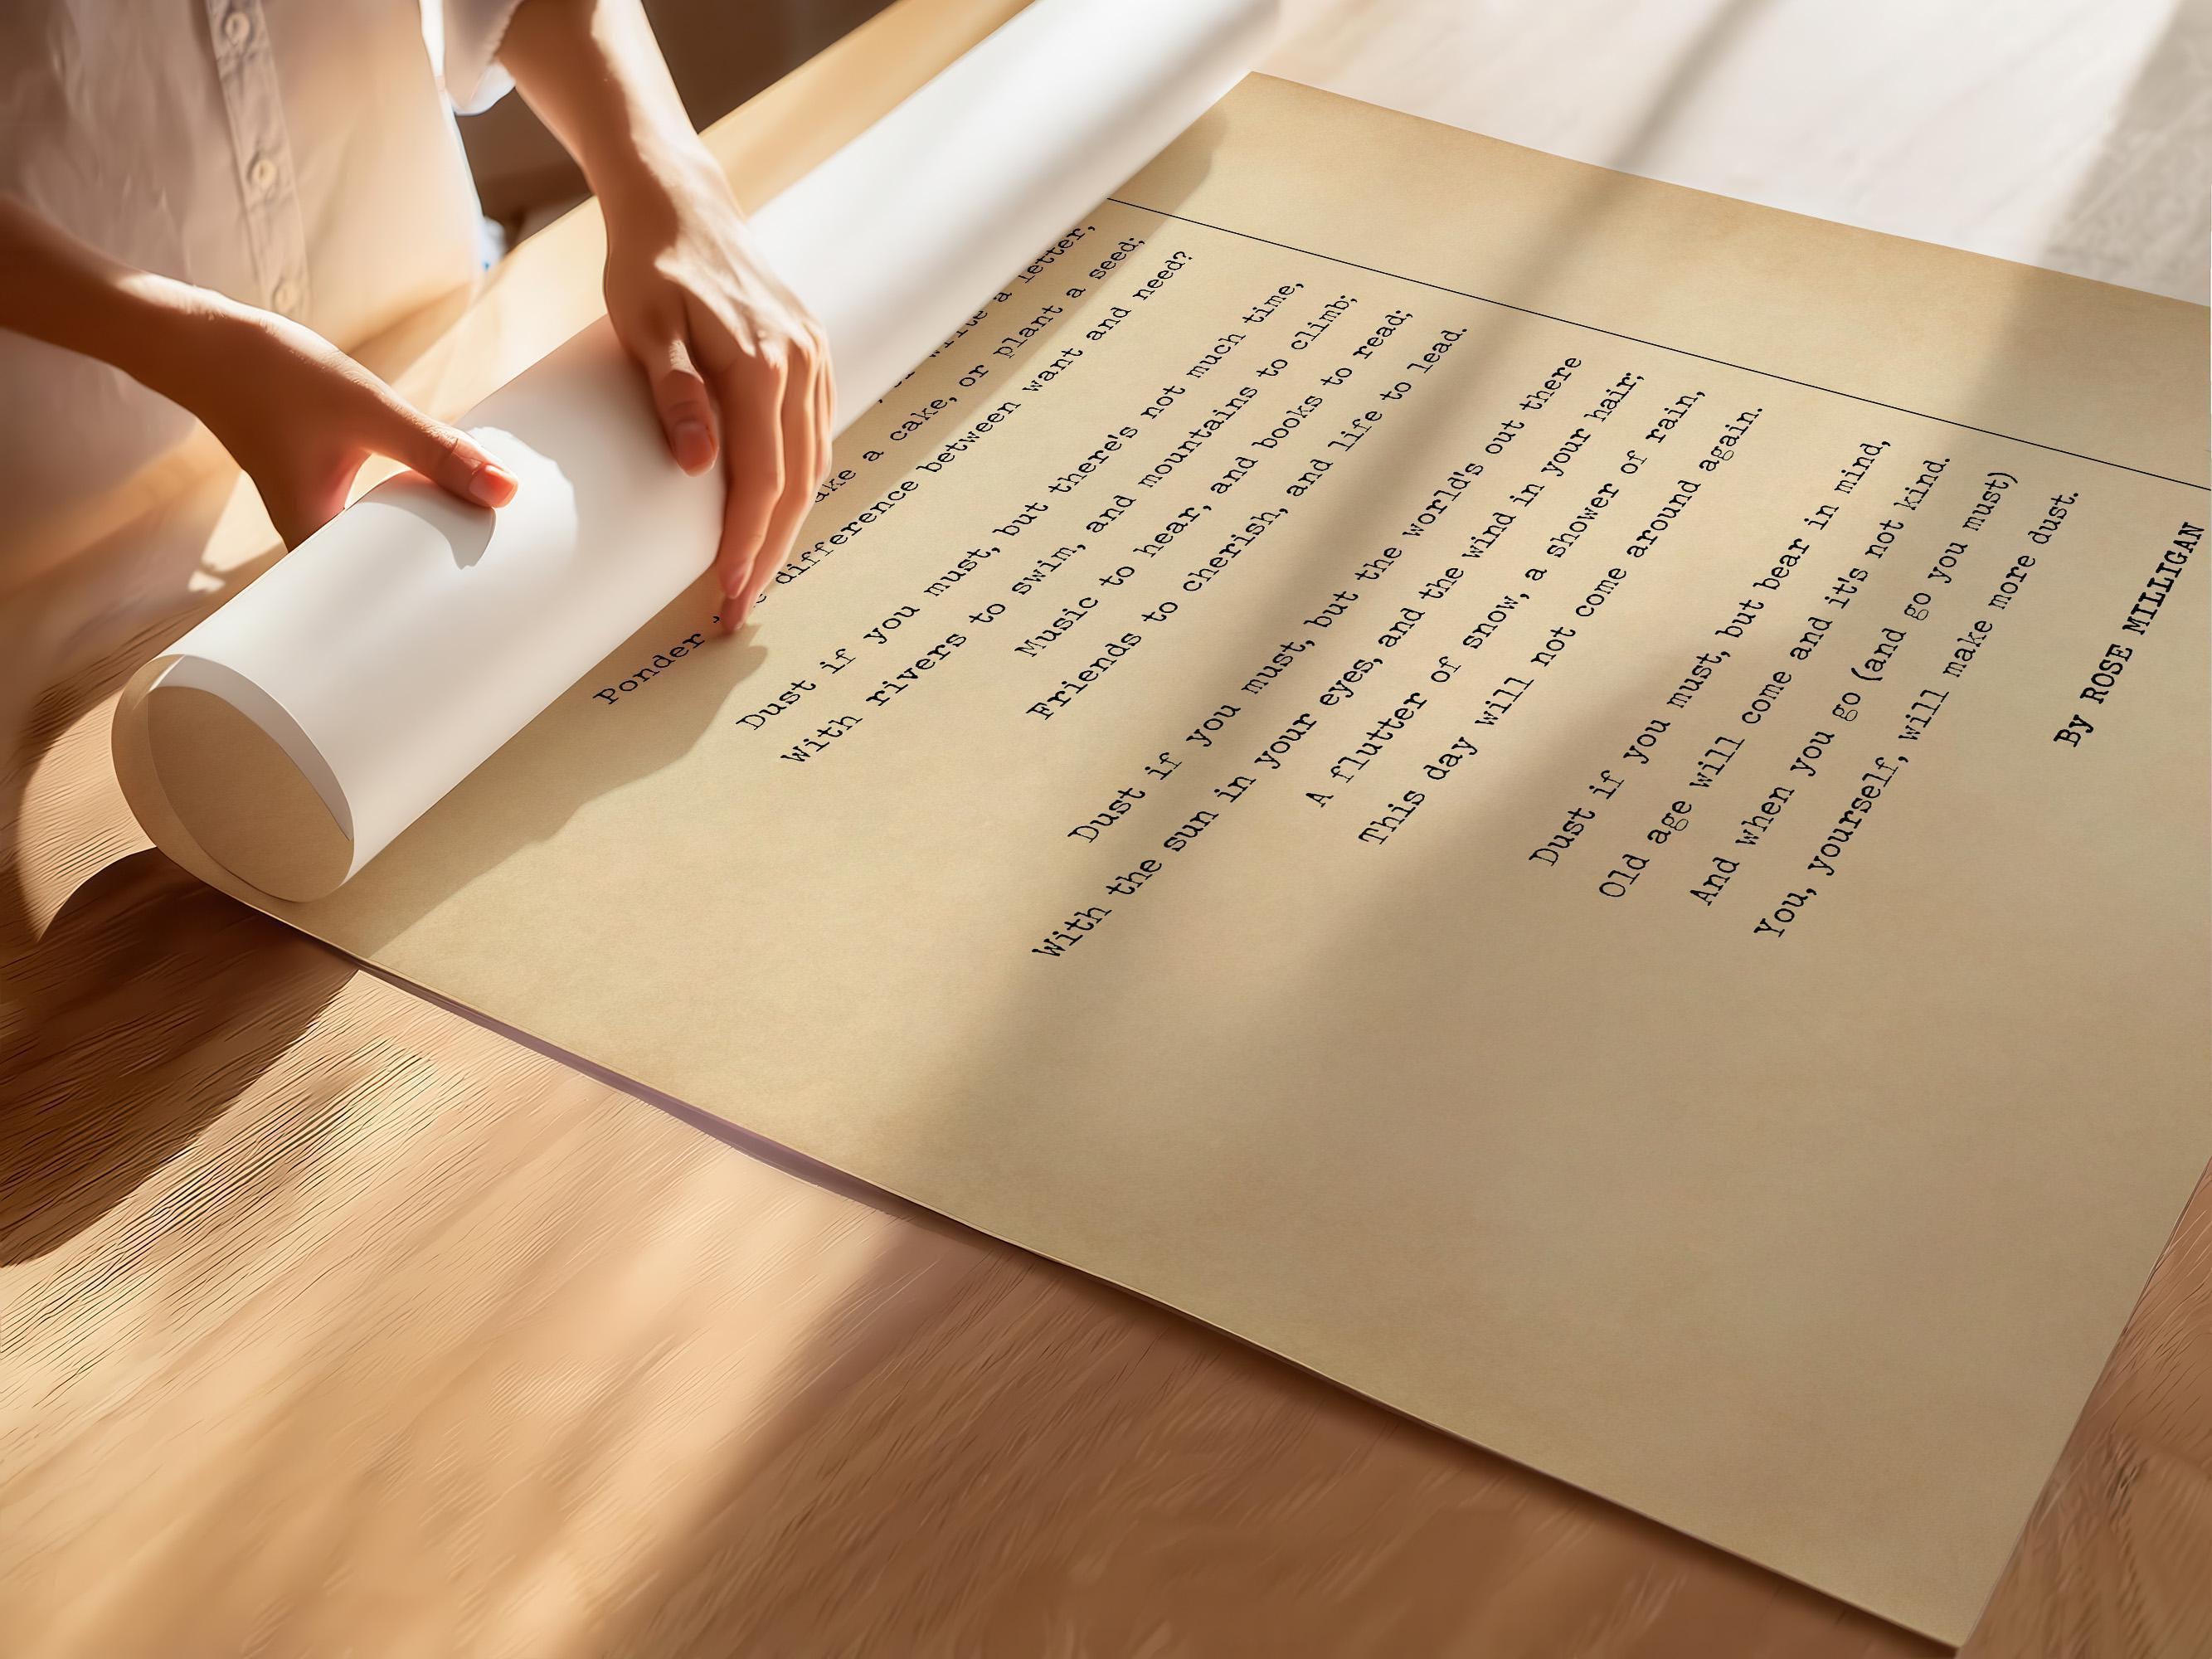 a letter,
ake a cake, or plant a seed;
Ponder difference between want and need?
Dust if you must, but there's not much time,
With rivers to swim, and mountains to climb;
Music to hear, and books to read;
Friends to cherish, and life to lead.
Dust if you must, but the world's out there
With the sun in your eyes, and the wind in your hair;
A flutter of snow, a shower of rain,
This day will not come around again.
Dust if you must, but bear in mind,
Old age will come and it's not kind.
And when you go (and go you must)
You, yourself, will make more dust.
By ROSE MILLIGAN